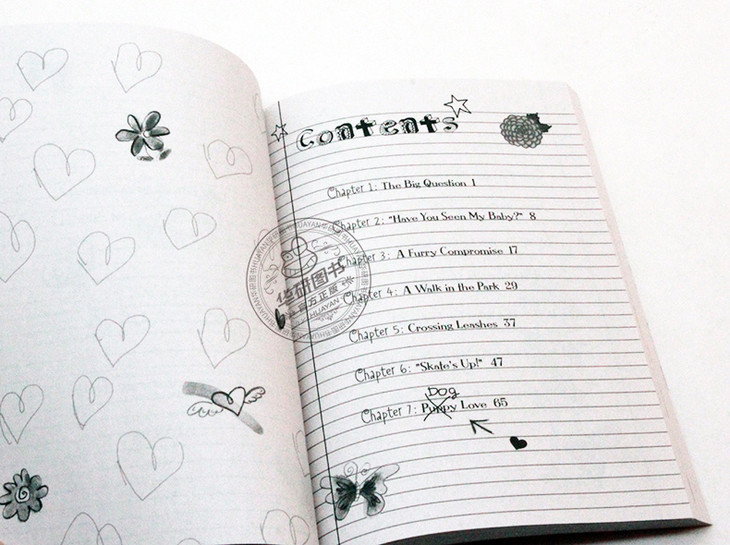 Contents
Chapter 1: The Big Question 1
Chapter 2: "Have You Seen My Baby?" 8
Chapter 3: A Furry Compromise 17
Chapter 4: A Walk in the Park 29
Chapter 5: Crossing Leashes 37
Chapter 6: "Skate's Up!" 47
Dog
Chapter 7: Puppy Love 65
华研图书
官方正版
HUAYAN